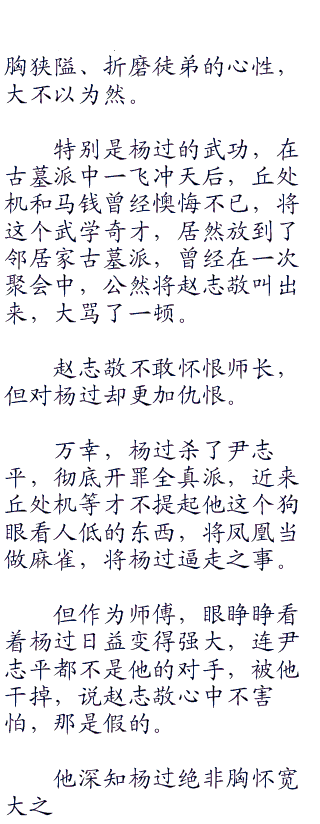 胸狭隘、折磨徒弟的心性，
大不以为然。
特别是杨过的武功，在
古墓派中一飞冲天后，丘处
机和马钱曾经懊悔不已，将
这个武学奇才，居然放到了
邻居家古墓派，曾经在一次
聚会中，公然将赵志敬叫出
来，大骂了一顿。
赵志敬不敢怀恨师长，
但对杨过却更加仇恨。
万幸，杨过杀了尹志
平，彻底开罪全真派，近来
丘处机等才不提起他这个狗
眼看人低的东西，将凤凰当
做麻雀，将杨过逼走之事。
但作为师傅，眼睁睁看
着杨过日益变得强大，连尹
志平都不是他的对手，被他
干掉，说赵志敬心中不害
怕，那是假的。
他深知杨过绝非胸怀宽
大之